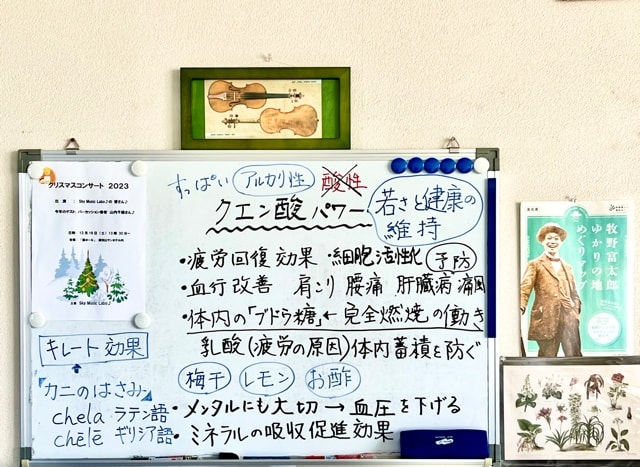 クリスマスコンサート 2023
出演 : Sky Music Labo♪の皆さん♪
すっぱい アルカリ性 酸性
クエン酸パワー
若さと健康の
維持
・疲労回復効果 ・細胞活性化 予防
・血行改善 肩こり 腰痛 肝臓病 痛風
・体内の「ブドウ糖」← 完全燃焼の働き
乳酸(疲労の原因)体内蓄積を防ぐ
梅干 レモン お酢
・メンタルにも大切 → 血圧を下げる
・ミネラルの吸収促進効果
キレート効果
「カニのはさみ」
chela ラテン語
chēlē ギリシア語
Sky Music Labo♪
牧野富太郎
ゆかりの地
めぐりマップ